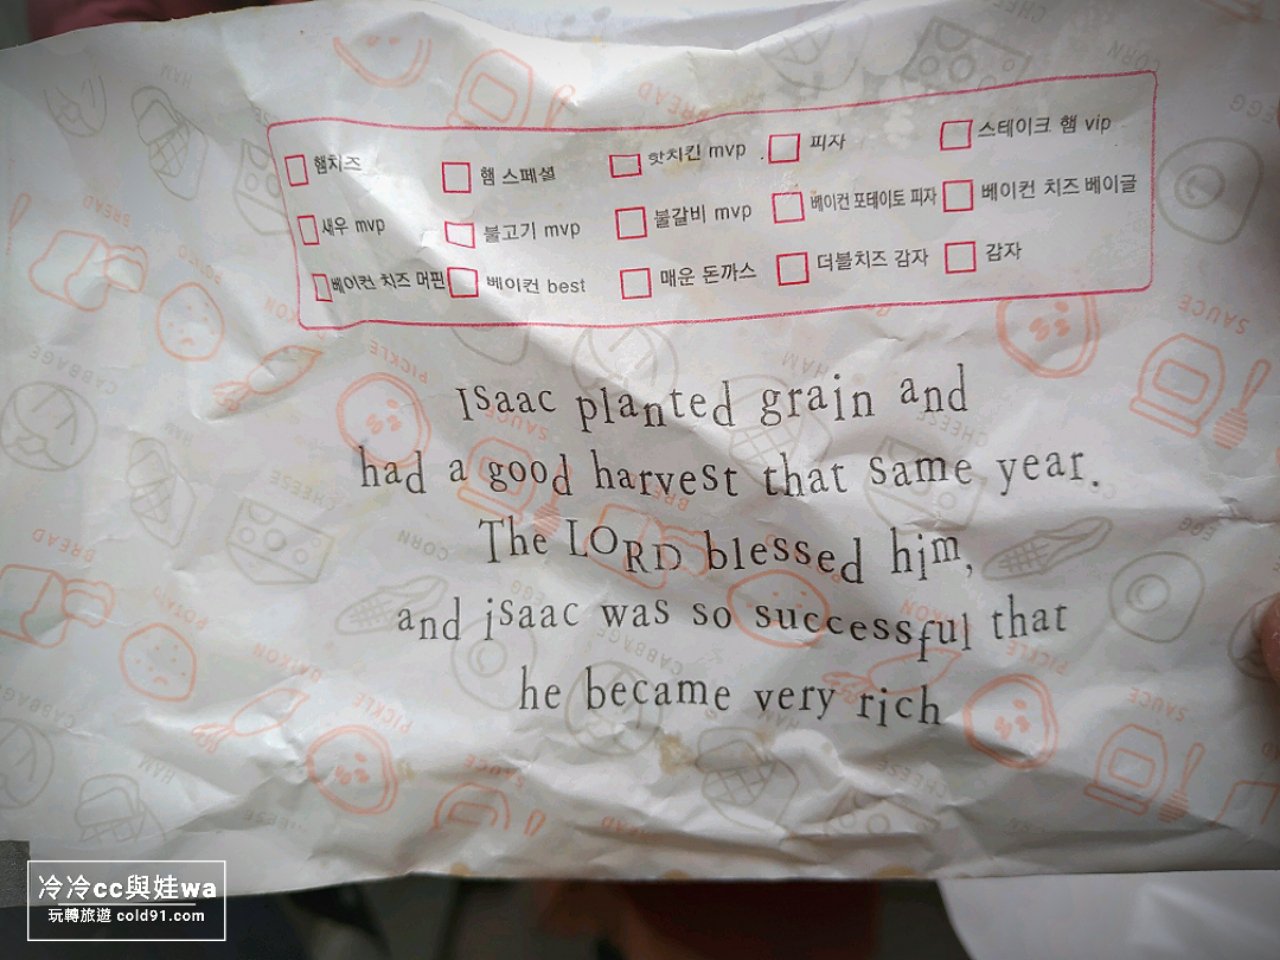 햄치즈 햄 스페셜 핫치킨 mvp 피자 스테이크 햄 vip
새우 mvp 불고기 mvp 불갈비 mvp 베이컨 포테이토 피자 베이컨 치즈 베이글
베이컨 치즈 머핀 베이컨 best 매운 돈까스 더블치즈 감자 감자
Isaac planted grain and
had a good harvest that same year.
The LORD blessed him,
and isaac was so successful that
he became very rich
HAM
CHEESE
CORN
EGG
BREAD
POTATO
CABBAGE
PICKLE
SAUCE
HAM
CHEESE
CORN
EGG
BREAD
POTATO
DAIKON
PICKLE
SAUCE
CABBAGE
HAM
CHEESE
冷冷cc與娃wa
玩轉旅遊 cold91.com